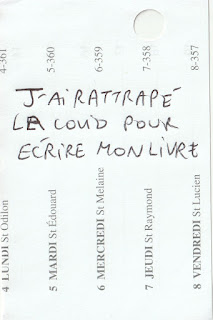 J'AI RATTRAPÉ
LA COVID POUR
ECRIRE MON LIVRE
4 LUNDI St Odilon 4-361
5 MARDI St Édouard 5-360
6 MERCREDI St Melaine 6-359
7 JEUDI St Raymond 7-358
8 VENDREDI St Lucien 8-357